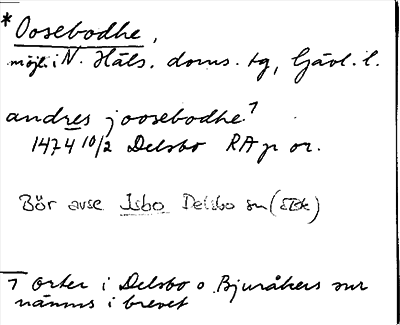 * Oosebodhe,
möjl. i N. Häls. doms. tg, Gävl. l.
andres j oosebodhe ⁷
1474 10/2 Delsbo RAp or.
Bör avse Isbo Delsbo sn
⁷ Orter i Delsbo o Bjuråkers snr
nämns i brevet